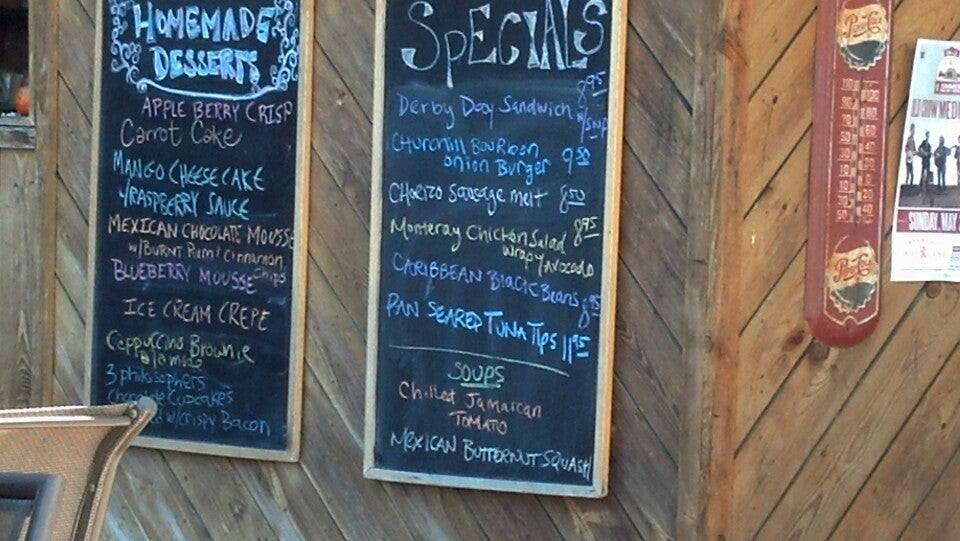 HOMEMADE
DESSERTS
APPLE BERRY CRISP
Carrot Cake
MANGO CHEESE CAKE
w/RASPBERRY SAUCE
MEXICAN CHOCOLATE MOUSSE
w/BURNT Rum/Cinnamon
Chips
BLUEBERRY MOUSSE
ICE CREAM CREPE
Cappuccino Brownie
a la mode
3 philosophers
Chocolate Cupcakes
w/crispy Bacon
SPECIALS
Derby Day Sandwich 8.95
w/soup
CHURCHILL BOURBON
onion Burger 9.50
CHORIZO Sausage melt 8.50
Monteray Chicken Salad 8.95
wrap y Avocado
CARIBBEAN Black Beans 8.95
PAN SEARED TUNA TIPS 11.95
SOUPS
Chilled Jamaican
TOMATO
MEXICAN BUTTERNUT SQUASH
PEPSI-COLA
PEPSI-COLA
SUNDAY, MAY